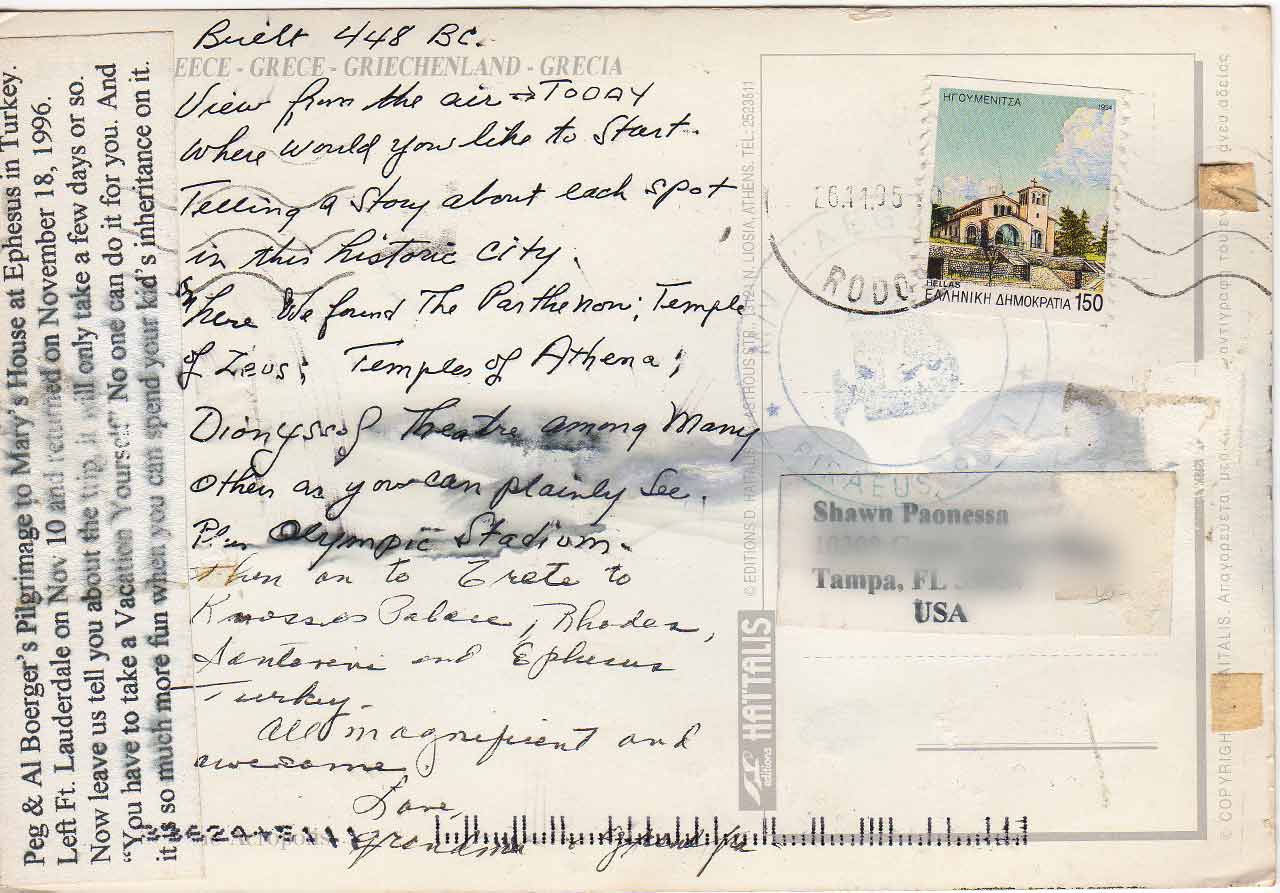 Built 448 BC.
EECE - GRECE - GRIECHENLAND - GRECIA
View from the air → TODAY
Where would you like to Start.
Telling a Story about each spot
in this historic city.
here We found The Parthenon; Temple
of Zeus; Temples of Athena;
Dionyssof Theatre among Many
Others as you can plainly See.
Plus Olympic Stadium.
Then on to Crete to
Knossos Palace, Rhodes,
Santorini and Ephesus
Turkey.
All magnificent and
awesome.
Love,
Grandma & Grandpa
Acropolis
Peg & Al Boerger's Pilgrimage to Mary's House at Ephesus in Turkey.
Left Ft. Lauderdale on Nov 10 and returned on November 18, 1996.
Now leave us tell you about the trip, it will only take a few days or so.
"You have to take a Vacation Yourself" No one can do it for you. And
it is so much more fun when you can spend your kid's inheritance on it.
© EDITIONS D. HAITALIS N. LIOSIA ATHENS. TEL: 2523511
HAÏTALIS
editions
ΗΓΟΥΜΕΝΙΤΣΑ 1994
HELLAS
ΕΛΛΗΝΙΚΗ ΔΗΜΟΚΡΑΤΙΑ 150
RODO
PIRAEUS
Shawn Paonessa
Tampa, FL
USA
© COPYRIGHT HAITALIS. Απαγορεύεται άνευ αδείας